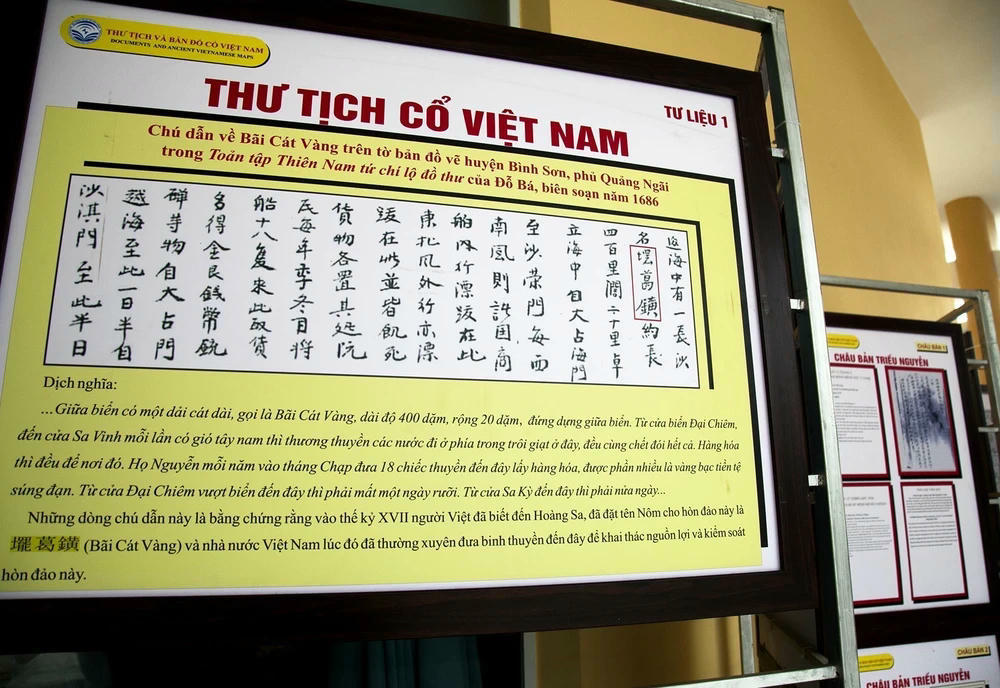 THƯ TỊCH VÀ BẢN ĐỒ CỔ VIỆT NAM
DOCUMENTS AND ANCIENT VIETNAMESE MAPS
THƯ TỊCH CỔ VIỆT NAM
TƯ LIỆU 1
Chú dẫn về Bãi Cát Vàng trên tờ bản đồ vẽ huyện Bình Sơn, phủ Quảng Ngãi
trong Toản tập Thiên Nam tứ chí lộ đồ thư của Đỗ Bá, biên soạn năm 1686
海中有一長沙
名𡓁葛鐄約長
四百里闊二十里卓
立海中自大占海門
至沙榮門每西
南風則諸国商
舶内行漂跋在此
東北風外行亦漂
跋在此並皆飢死
貨物各置其処阮
氏每年季冬月將
船十八隻來此取貨
多得金艮錢幣銃
彈等物自大占門
越海至此一日半自
沙淇門至此半日
Dịch nghĩa:
...Giữa biển có một dải cát dài, gọi là Bãi Cát Vàng, dài độ 400 dặm, rộng 20 dặm, đứng dựng giữa biển. Từ cửa biển Đại Chiêm,
đến cửa Sa Vinh mỗi lần có gió tây nam thì thương thuyền các nước đi ở phía trong trôi giạt ở đây, đều cùng chết đói hết cả. Hàng hóa
thì đều để nơi đó. Họ Nguyễn mỗi năm vào tháng Chạp đưa 18 chiếc thuyền đến đây lấy hàng hóa, được phần nhiều là vàng bạc tiền tệ
súng đạn. Từ cửa Đại Chiêm vượt biển đến đây thì phải mất một ngày rưỡi. Từ cửa Sa Kỳ đến đây thì phải nửa ngày...
Những dòng chú dẫn này là bằng chứng rằng vào thế kỷ XVII người Việt đã biết đến Hoàng Sa, đã đặt tên Nôm cho hòn đảo này là
𡓁葛鐄 (Bãi Cát Vàng) và nhà nước Việt Nam lúc đó đã thường xuyên đưa binh thuyền đến đây để khai thác nguồn lợi và kiểm soát
hòn đảo này.
CHÂU BẢN 1
CHÂU BẢN TRIỀU NGUYỄN
CHÂU BẢN 2
CHÂU BẢN TRIỀU NGUYỄN